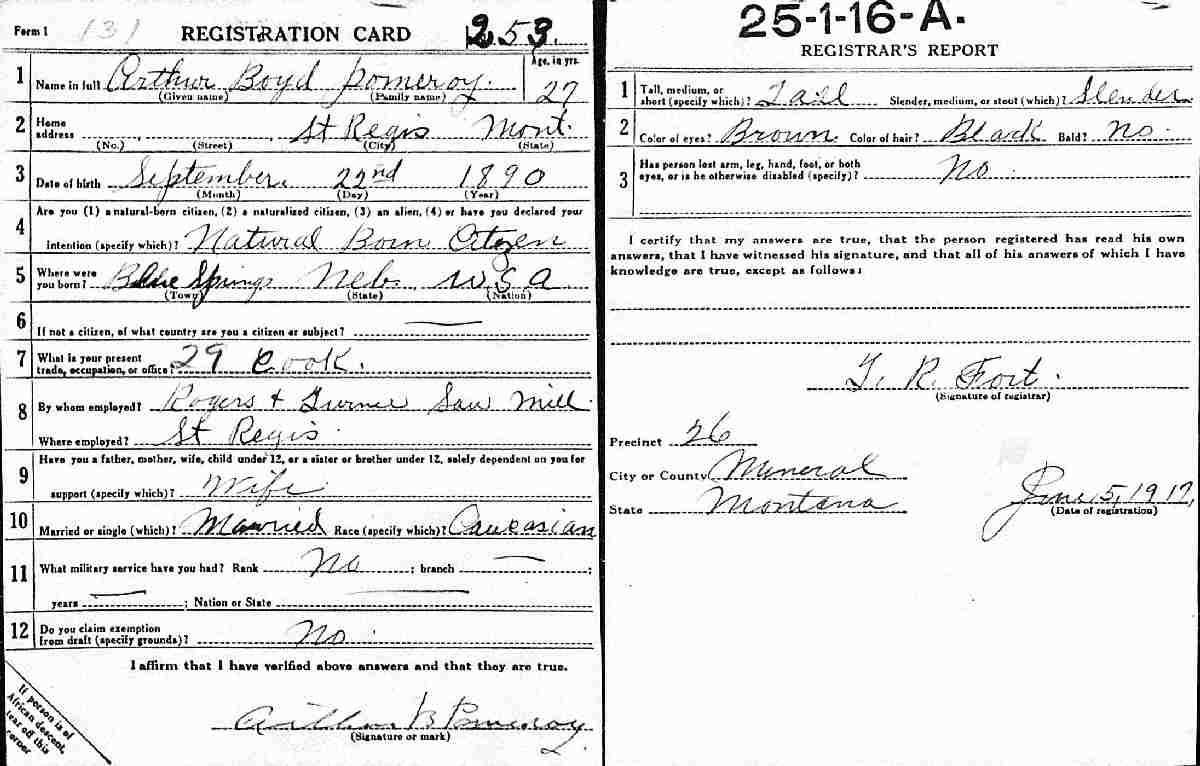 Form 1 131 REGISTRATION CARD 253.
Age, in yrs.
1 Name in full Arthur Boyd Pomeroy 27
(Given name) (Family name)
2 Home address St Regis Mont.
(No.) (Street) (City) (State)
3 Date of birth September 22nd 1890
(Month) (Day) (Year)
4 Are you (1) a natural-born citizen, (2) a naturalized citizen, (3) an alien, (4) or have you declared your
intention (specify which)? Natural Born Citizen
5 Where were you born? Blue Springs Nebr U.S.A
(Town) (State) (Nation)
6 If not a citizen, of what country are you a citizen or subject?
7 What is your present trade, occupation, or office? 29 Cook.
8 By whom employed? Rogers & Turner Saw Mill
Where employed? St Regis
9 Have you a father, mother, wife, child under 12, or a sister or brother under 12, solely dependent on you for
support (specify which)? Wife
10 Married or single (which)? Married Race (specify which)? Caucasian
11 What military service have you had? Rank No ; branch ;
years ; Nation or State
12 Do you claim exemption from draft (specify grounds)? No.
I affirm that I have verified above answers and that they are true.
Arthur B Pomeroy
(Signature or mark)
If person is of
African descent,
tear off this
corner
25-1-16-A.
REGISTRAR'S REPORT
1 Tall, medium, or short (specify which)? Tall Slender, medium, or stout (which)? Slender
2 Color of eyes? Brown Color of hair? Black Bald? No.
3 Has person lost arm, leg, hand, foot, or both
eyes, or is he otherwise disabled (specify)? No
I certify that my answers are true, that the person registered has read his own
answers, that I have witnessed his signature, and that all of his answers of which I have
knowledge are true, except as follows:
T. R. Fort.
(Signature of registrar)
Precinct 26
City or County Mineral
State Montana
June 5, 1917
(Date of registration)